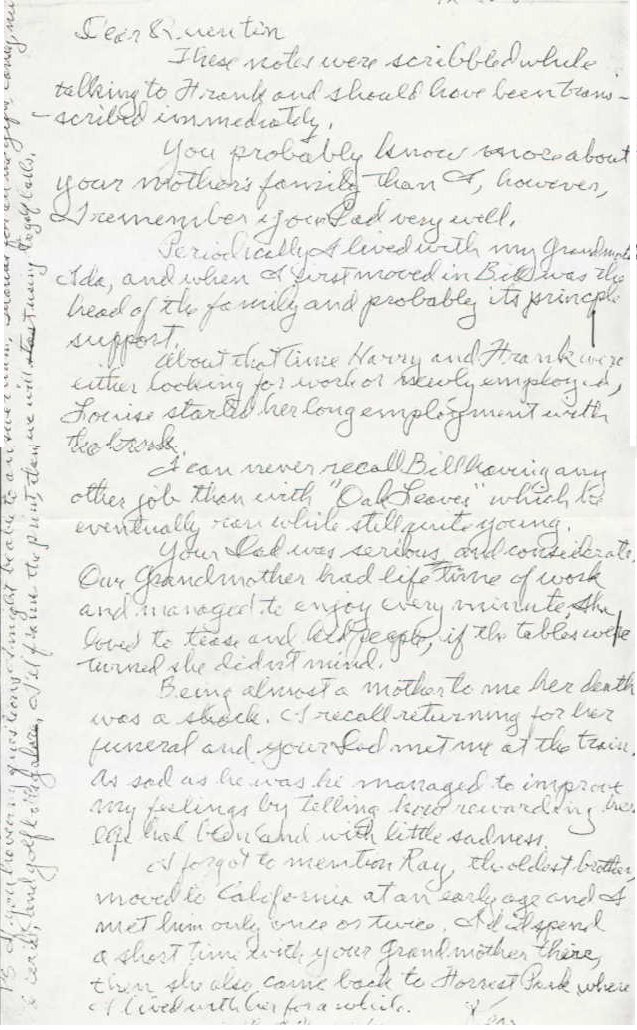 Dear Quentin
These notes were scribbled while
talking to Frank and should have been trans-
scribed immediately.
You probably know more about
your mother's family than I, however,
I remember your Dad very well.
Periodically I lived with my Grandmother
Ida, and when I first moved in Bill was the
head of the family and probably its principle
support.
About that time Harry and Frank were
either looking for work or newly employed,
Louise started her long employment with
the
I can never recall Bill having any
other job than with "Oak Leaves" which he
eventually ran while still quite young.
Your Dad was serious, and considerate.
Our Grandmother had life time of work
and managed to enjoy every minute, she
loved to tease and kid people, if the tables were
turned she didn't mind.
Being almost a mother to me her death
was a shock. I recall returning for her
funeral and your Dad met me at the train.
As sad as he was he managed to improve
my feelings by telling how rewarding her
life had been and with little sadness.
I forgot to mention Ray, the oldest brother,
moved to California at an early age and I
met him only once or twice. I did spend
a short time with your Grandmother there,
then she also came back to Forrest Park where
I lived with her for a while.
PS If you have any questions I might be able to answer them,